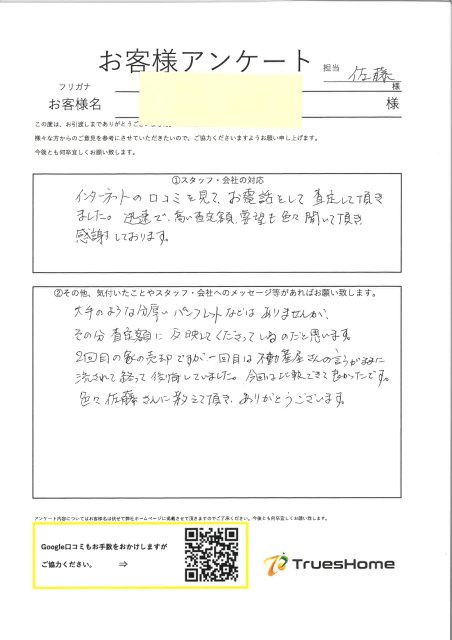 お客様アンケート
担当 佐藤 様
フリガナ
お客様名 様
この度は、お引渡しまでありがとうございました。
様々な方からのご意見を参考にさせていただきたいので、ご協力くださいますようお願い申し上げます。
今後とも何卒宜しくお願い致します。
①スタッフ・会社の対応
インターネットの口コミを見て、お電話をして査定して頂き
ました。迅速で、高い査定額、要望も色々聞いて頂き
感謝しております。
②その他、気付いたことやスタッフ・会社へのメッセージ等があればお願い致します。
大手のような分厚いパンフレットなどはありませんが、
その分査定額に反映してくださっているのだと思います。
2回目の家の売却ですが一回目は不動産屋さんの言うがままに
流されて終って後悔していました。今回は比較できて良かったです。
色々佐藤さんに教えて頂き、ありがとうございます。
アンケート内容についてはお客様名は伏せて弊社ホームページに掲載させて頂きますのでご了承ください。今後とも何卒宜しくお願い致します。
Google口コミもお手数をおかけしますが
ご協力ください。 ⇒
TruesHome